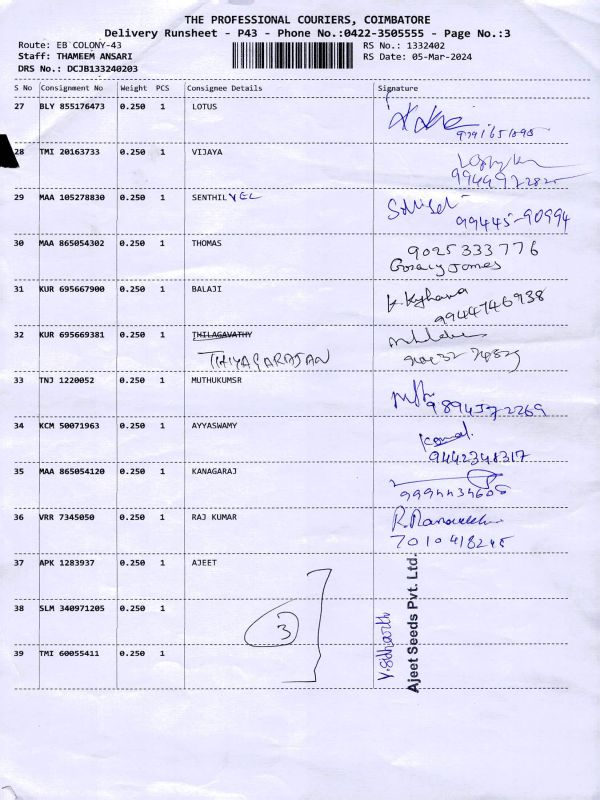 THE PROFESSIONAL COURIERS, COIMBATORE
Delivery Runsheet - P43 - Phone No.:0422-3505555 - Page No.:3
Route: EB COLONY-43 RS No.: 1332402
Staff: THAMEEM ANSARI RS Date: 05-Mar-2024
DRS No.: DCJB133240203
S No Consignment No Weight PCS Consignee Details Signature
27 BLY 855176473 0.250 1 LOTUS
28 TMI 20163733 0.250 1 VIJAYA
29 MAA 105278830 0.250 1 SENTHIL VEL
99445-90994
30 MAA 865054302 0.250 1 THOMAS 9025333776
James
31 KUR 695667900 0.250 1 BALAJI
9944746938
32 KUR 695669381 0.250 1 THILAGAVATHY
THIYAGARAJAN
33 TNJ 1220052 0.250 1 MUTHUKUMSR
9894572269
34 KCM 50071963 0.250 1 AYYASWAMY
9442348317
35 MAA 865054120 0.250 1 KANAGARAJ
9994434605
36 VRR 7345050 0.250 1 RAJ KUMAR
7010418245
37 APK 1283937 0.250 1 AJEET
38 SLM 340971205 0.250 1
3
39 TMI 60055411 0.250 1
V.Sidharth
Ajeet Seeds Pvt. Ltd.